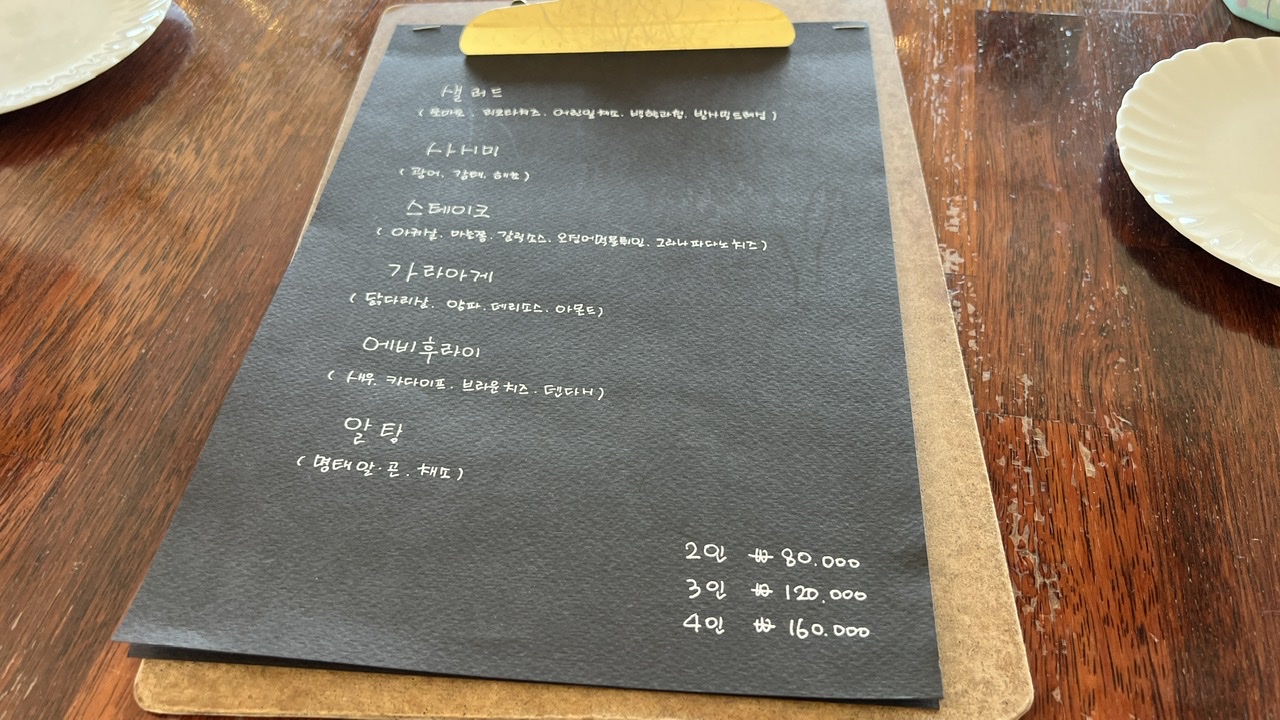 샐러드
(토마토. 리코타치즈. 어린잎채소. 백향과청. 발사믹드레싱)
사시미
(광어. 감태. 해초)
스테이크
(아귀살. 마늘쫑. 갈릭소스. 오징어먹물튀일. 그라나파다노치즈)
가라아게
(닭다리살. 양파. 데리소스. 아몬드)
에비후라이
(새우. 카다이프. 브라운치즈. 덴다시)
알탕
(명태알·곤. 채소)
2인 ₩ 80.000
3인 ₩ 120.000
4인 ₩ 160.000